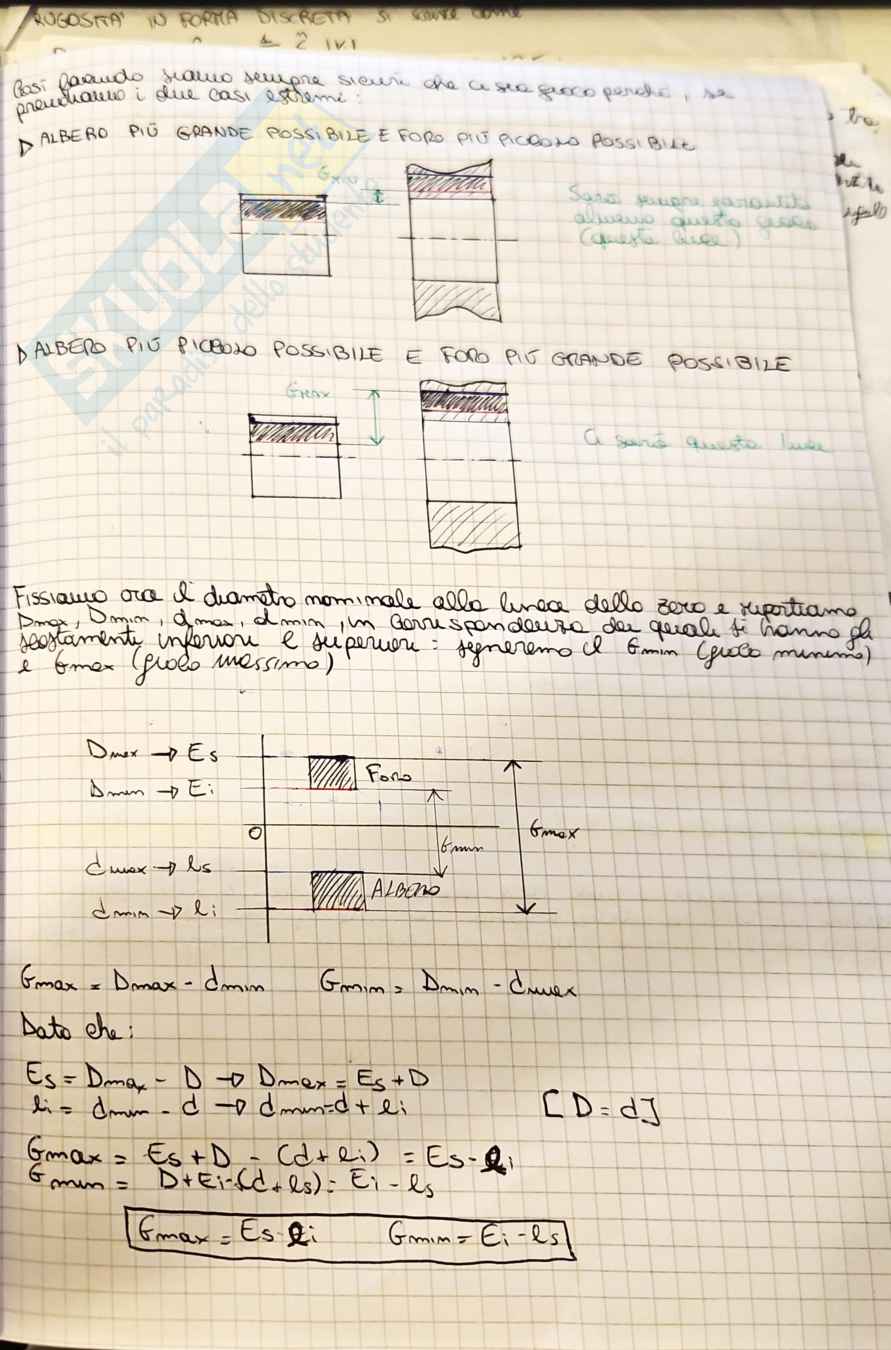 RUGOSITA' IN FORMA DISCRETA si scrive come
Così facendo siamo sempre sicuri che ci sia gioco perché, se
prendiamo i due casi estremi:
▷ ALBERO PIÙ GRANDE POSSIBILE E FORO PIÙ PICCOLO POSSIBILE
Gmin
Sarà sempre garantito
almeno questo gioco
(questa luce)
SKUOLA.net
il paradiso dello studente
▷ ALBERO PIÙ PICCOLO POSSIBILE E FORO PIÙ GRANDE POSSIBILE
Gmax
Ci sarà questa luce
Fissiamo ora il diametro nominale alla linea dello zero e riportiamo
Dmax, Dmin, dmax, dmin, in corrispondenza dei quali si hanno gli
scostamenti inferiori e superiori: segneremo il Gmin (gioco minimo)
e Gmax (gioco massimo)
Dmax → Es
FORO
Dmin → Ei
0
Gmin
Gmax
dmax → es
ALBERO
dmin → ei
Gmax = Dmax - dmin Gmin = Dmin - dmax
Dato che:
Es = Dmax - D → Dmax = Es + D
ei = dmin - d → dmin = d + ei [D = d]
Gmax = Es + D - (d + ei) = Es - ei
Gmin = D + Ei - (d + es) = Ei - es
Gmax = Es - ei Gmin = Ei - es